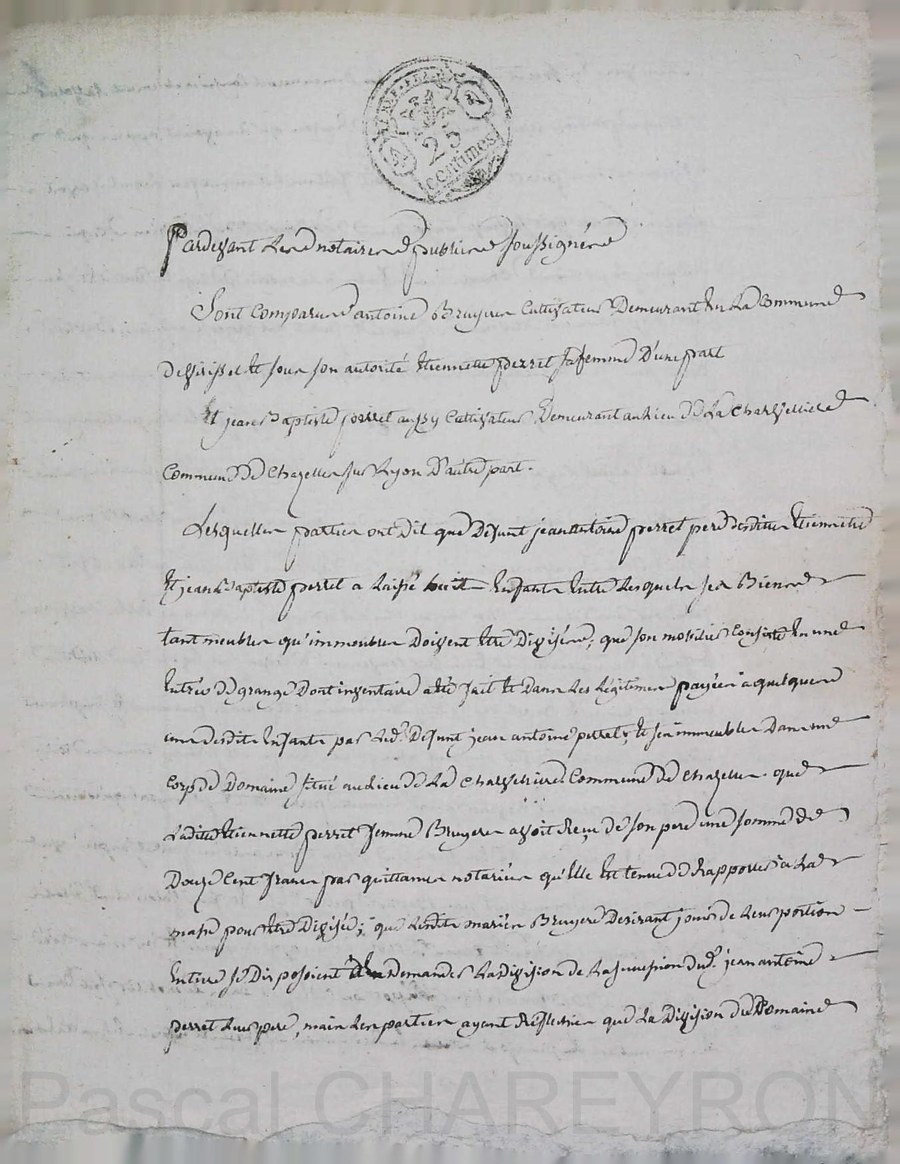 REP. FRA.
25
centimes
Pardevant Les notaires publics soussignés
Sont Comparus antoine Bruyere Cultivateur Demeurant En La Commune
de Et sous son autorité Etiennette perret sa femme D'une part
Et jean Baptiste perret aussy Cultivateur Demeurant au Lieu de La
Commune de Chazelles sur Lyon D'autre part.
Lesquelles parties ont Dit que Défunt jean antoine perret pere desdits Etiennette
Et jean Baptiste perret a Laissé huit Enfants Entre Lesquels ses Biens
tant meubles qu'immeubles Doivent Etre Divisés; que son mobilier Consiste En une
Entrée de grange Dont inventaire a été fait Et Dans Les Légitimes payées a quelques
uns desdits Enfants par Led. Défunt jean antoine perret, Et ses immeubles Dans un
Corps de Domaine situé au Lieu de La Commune de Chazelles. que
Ladite Etiennette perret femme Bruyere avoit Reçu de son pere une somme de
Douze Cent francs par quittances notariées qu'Elle Est tenue de Rapporter a La
masse pour Etre Divisée; que Lesdits mariés Bruyere Desirant jouir de Leur portion
Entiere se Disposoient a Demander La Division de La succession dud. jean antoine
perret Leur pere, mais Les parties ayant Réfléchies que La Division du Domaine
Pascal CHAREYRON